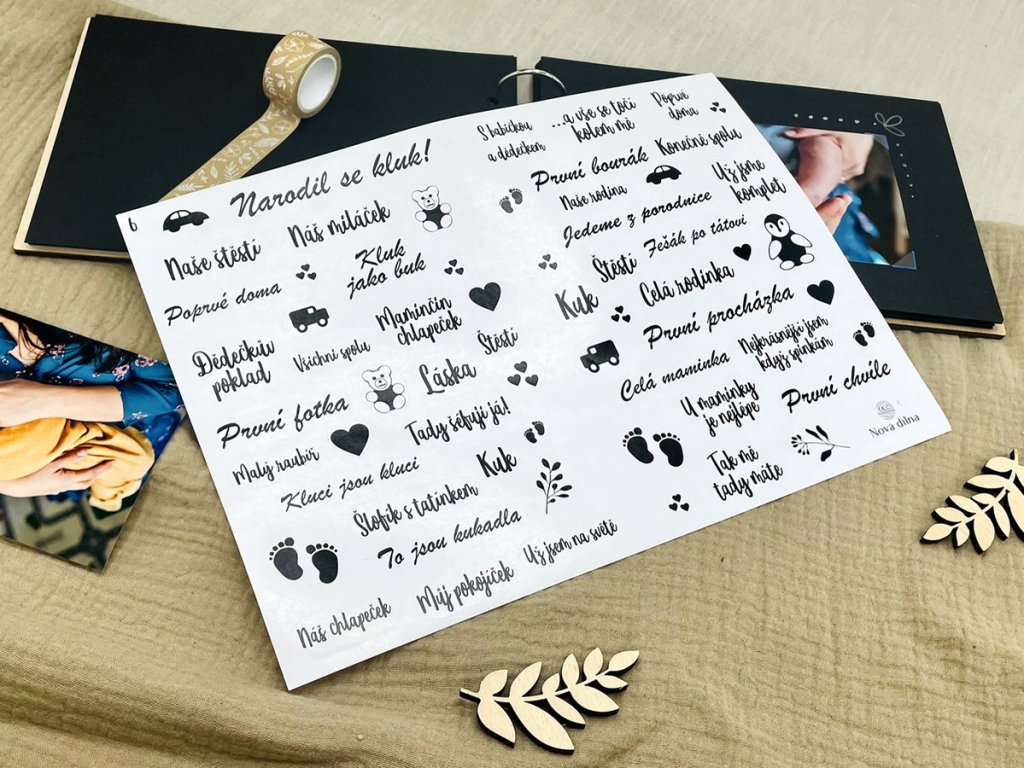 6
Narodil se kluk!
Naše štěstí
Náš miláček
Poprvé doma
Kluk
jako buk
Maminčin
chlapeček
Dědečkův
poklad
Všichni spolu
Láska
Štěstí
První fotka
Tady šéfuji já!
Malý raubíř
Kluci jsou kluci
Kuk
Šlofík s tatínkem
To jsou kukadla
Už jsem na světě
Můj pokojíček
Náš chlapeček
S babičkou
a dědečkem
...a vše se točí
kolem mě
Poprvé
doma
První bourák
Konečně spolu
Naše rodina
Už jsme
komplet
Jedeme z porodnice
Štěstí
Fešák po tátovi
Kuk
Celá rodinka
První procházka
Celá maminka
Nejkrásnější jsem
když spinkám
U maminky
je nejlépe
První chvíle
Tak mě
tady máte
Nová dílna